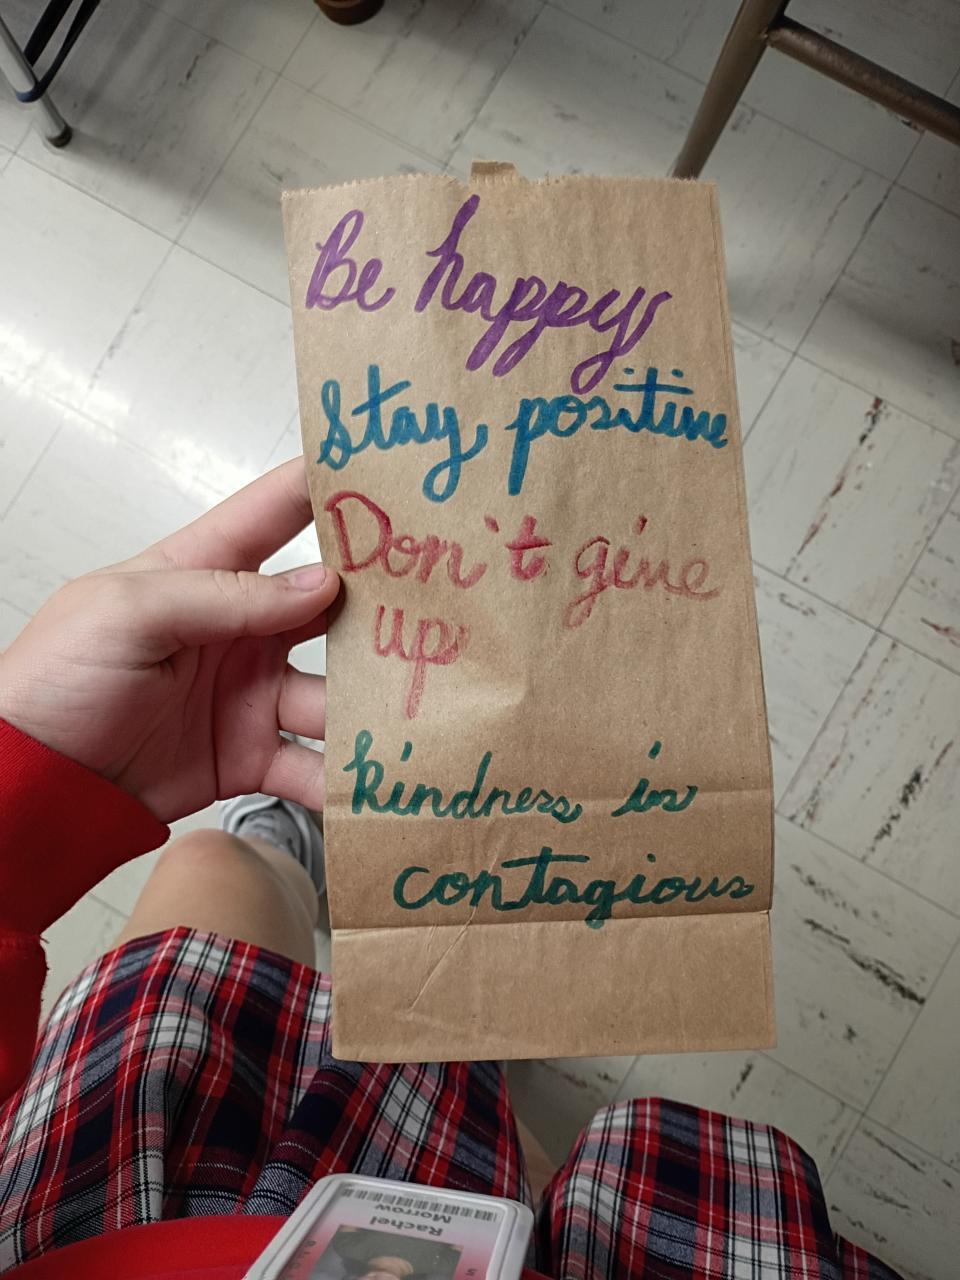 Be happy
Stay positive
Don't give
up
kindness is
contagious
Rachel
Morrow